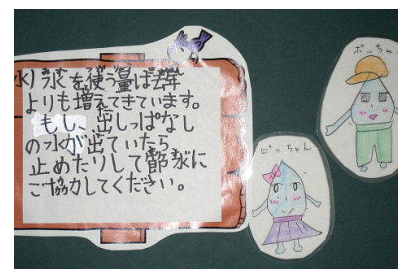 水を使う量は去年
よりも増えてきています。
もし、出しっぱなし
の水が出ていたら
止めたりして節水に
ご協力してください。
ピっちゃん
ポっちゃん